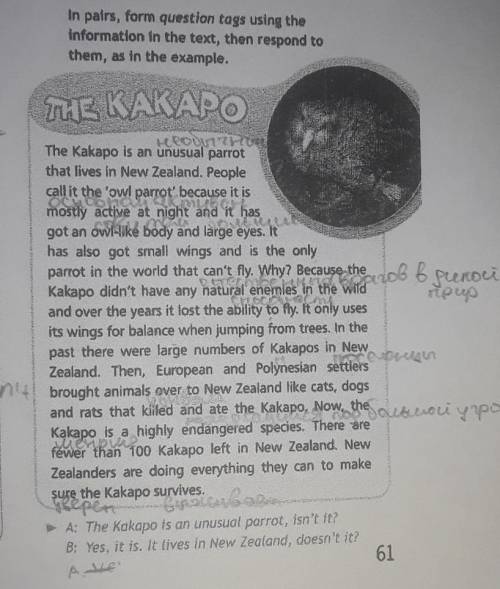 In pairs, form question tags using the
information in the text, then respond to
them, as in the example.
THE KAKAPO
The Kakapo is an unusual parrot
that lives in New Zealand. People
call it the 'owl parrot' because it is
mostly active at night and it has
got an owl-like body and large eyes. It
has also got small wings and is the only
parrot in the world that can't fly. Why? Because the
Kakapo didn't have any natural enemies in the wild
and over the years it lost the ability to fly. It only uses
its wings for balance when jumping from trees. In the
past there were large numbers of Kakapos in New
Zealand. Then, European and Polynesian settlers
brought animals over to New Zealand like cats, dogs
and rats that killed and ate the Kakapo. Now, the
Kakapo is a highly endangered species. There are
fewer than 100 Kakapo left in New Zealand. New
Zealanders are doing everything they can to make
sure the Kakapo survives.
уверен
A: The Kakapo is an unusual parrot, isn't it?
B: Yes, it is. It lives in New Zealand, doesn't it?
61